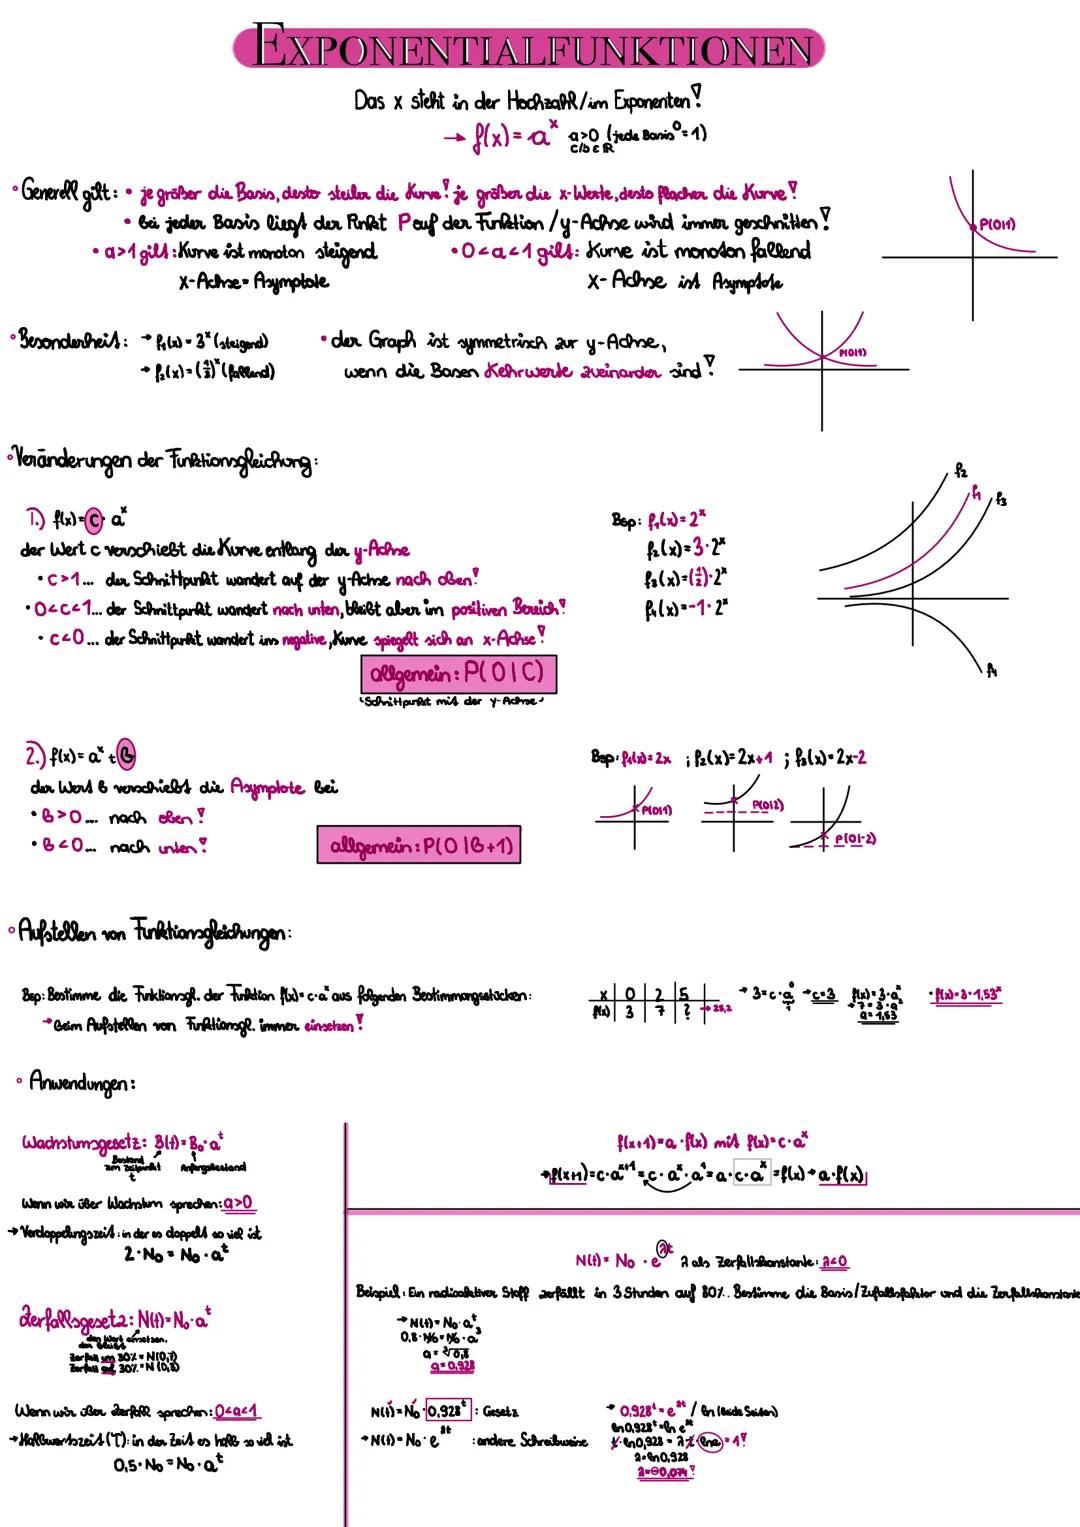 EXPONENTIALFUNKTIONEN
Das x steht in der Hochzahl/im Exponenten!
→ f(x) = a^x a>0 (jede Basis^0 = 1)
c/b ∈ ℝ
• Generell gilt: • je größer die Basis, desto steiler die Kurve! je größer die x-Werte, desto flacher die Kurve!
• bei jeder Basis liegt der Punkt P auf der Funktion / y-Achse wird immer geschnitten!
• a>1 gilt: Kurve ist monoton steigend • 0<a<1 gilt: Kurve ist monoton fallend
x-Achse = Asymptote x-Achse ist Asymptote
P(0|1)
• Besonderheit: → f₁(x) = 3^x (steigend) • der Graph ist symmetrisch zur y-Achse,
→ f₂(x) = (1/3)^x (fallend) wenn die Basen Kehrwerte zueinander sind!
P(0|1)
• Veränderungen der Funktionsgleichung:
1.) f(x) = c · a^x
der Wert c verschiebt die Kurve entlang der y-Achse
• c>1... der Schnittpunkt wandert auf der y-Achse nach oben!
• 0<c<1... der Schnittpunkt wandert nach unten, bleibt aber im positiven Bereich!
• c<0... der Schnittpunkt wandert ins negative, Kurve spiegelt sich an x-Achse!
allgemein: P(0|C)
Schnittpunkt mit der y-Achse
Bsp: f₁(x) = 2^x
f₂(x) = 3·2^x
f₃(x) = (1/2)·2^x
f₄(x) = -1·2^x
f₂
f₁
f₃
f₄
2.) f(x) = a^x + b
der Wert b verschiebt die Asymptote bei
• b>0... nach oben!
• b<0... nach unten!
allgemein: P(0|b+1)
Bsp: f₁(x) = 2x ; f₂(x) = 2x+1 ; f₃(x) = 2x-2
P(0|1) P(0|2) P(0|-2)
• Aufstellen von Funktionsgleichungen:
Bsp: Bestimme die Funktionsgl. der Funktion f(x) = c·a^x aus folgenden Bestimmungsstücken:
→ Beim Aufstellen von Funktionsgl. immer einsetzen!
x | 0 | 2 | 5
f(x) | 3 | 7 | ? → 25,2
→ 3 = c·a^0 → c = 3
1
f(x) = 3·a^x
→ 7 = 3·a^2
a = 1,53
• f(x) = 3·1,53^x
• Anwendungen:
Wachstumsgesetz: B(t) = B₀·a^t
Bestand zum Zeitpunkt t Anfangsbestand
Wenn wir über Wachstum sprechen: a>0
→ Verdoppelungszeit: in der es doppelt so viel ist
2·N₀ = N₀·a^t
Zerfallsgesetz: N(t) = N₀·a^t
den Wert einsetzen,
der bleibt
Zerfall um 30% = N(0,7)
Zerfall auf 30% = N(0,3)
Wenn wir über Zerfall sprechen: 0<a<1
→ Halbwertszeit (T): in der Zeit es halb so viel ist
0,5·N₀ = N₀·a^t
f(x+1) = a·f(x) mit f(x) = c·a^x
→ f(x+1) = c·a^(x+1) = c·a^x·a^1 = a·c·a^x = f(x) → a·f(x)
N(t) = N₀·e^(λt) λ als Zerfallskonstante: λ<0
Beispiel: Ein radioaktiver Stoff zerfällt in 3 Stunden auf 80%. Bestimme die Basis/Zufallsfaktor und die Zerfallskonstante
→ N(t) = N₀·a^t
0,8·N₀ = N₀·a^3
a = ³√0,8
a = 0,928
N(t) = N₀·0,928^t : Gesetz
→ N(t) = N₀·e^(λt) : andere Schreibweise
→ 0,928^t = e^(λt) / ln (beide Seiten)
ln 0,928^t = ln e^(λt)
t·ln 0,928 = λ·t·(ln e) = 1!
λ = ln 0,928
λ = -0,074!